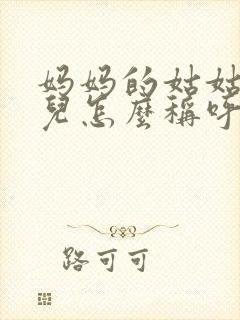 妈妈的姑姑
兒怎麼稱呼
路可可